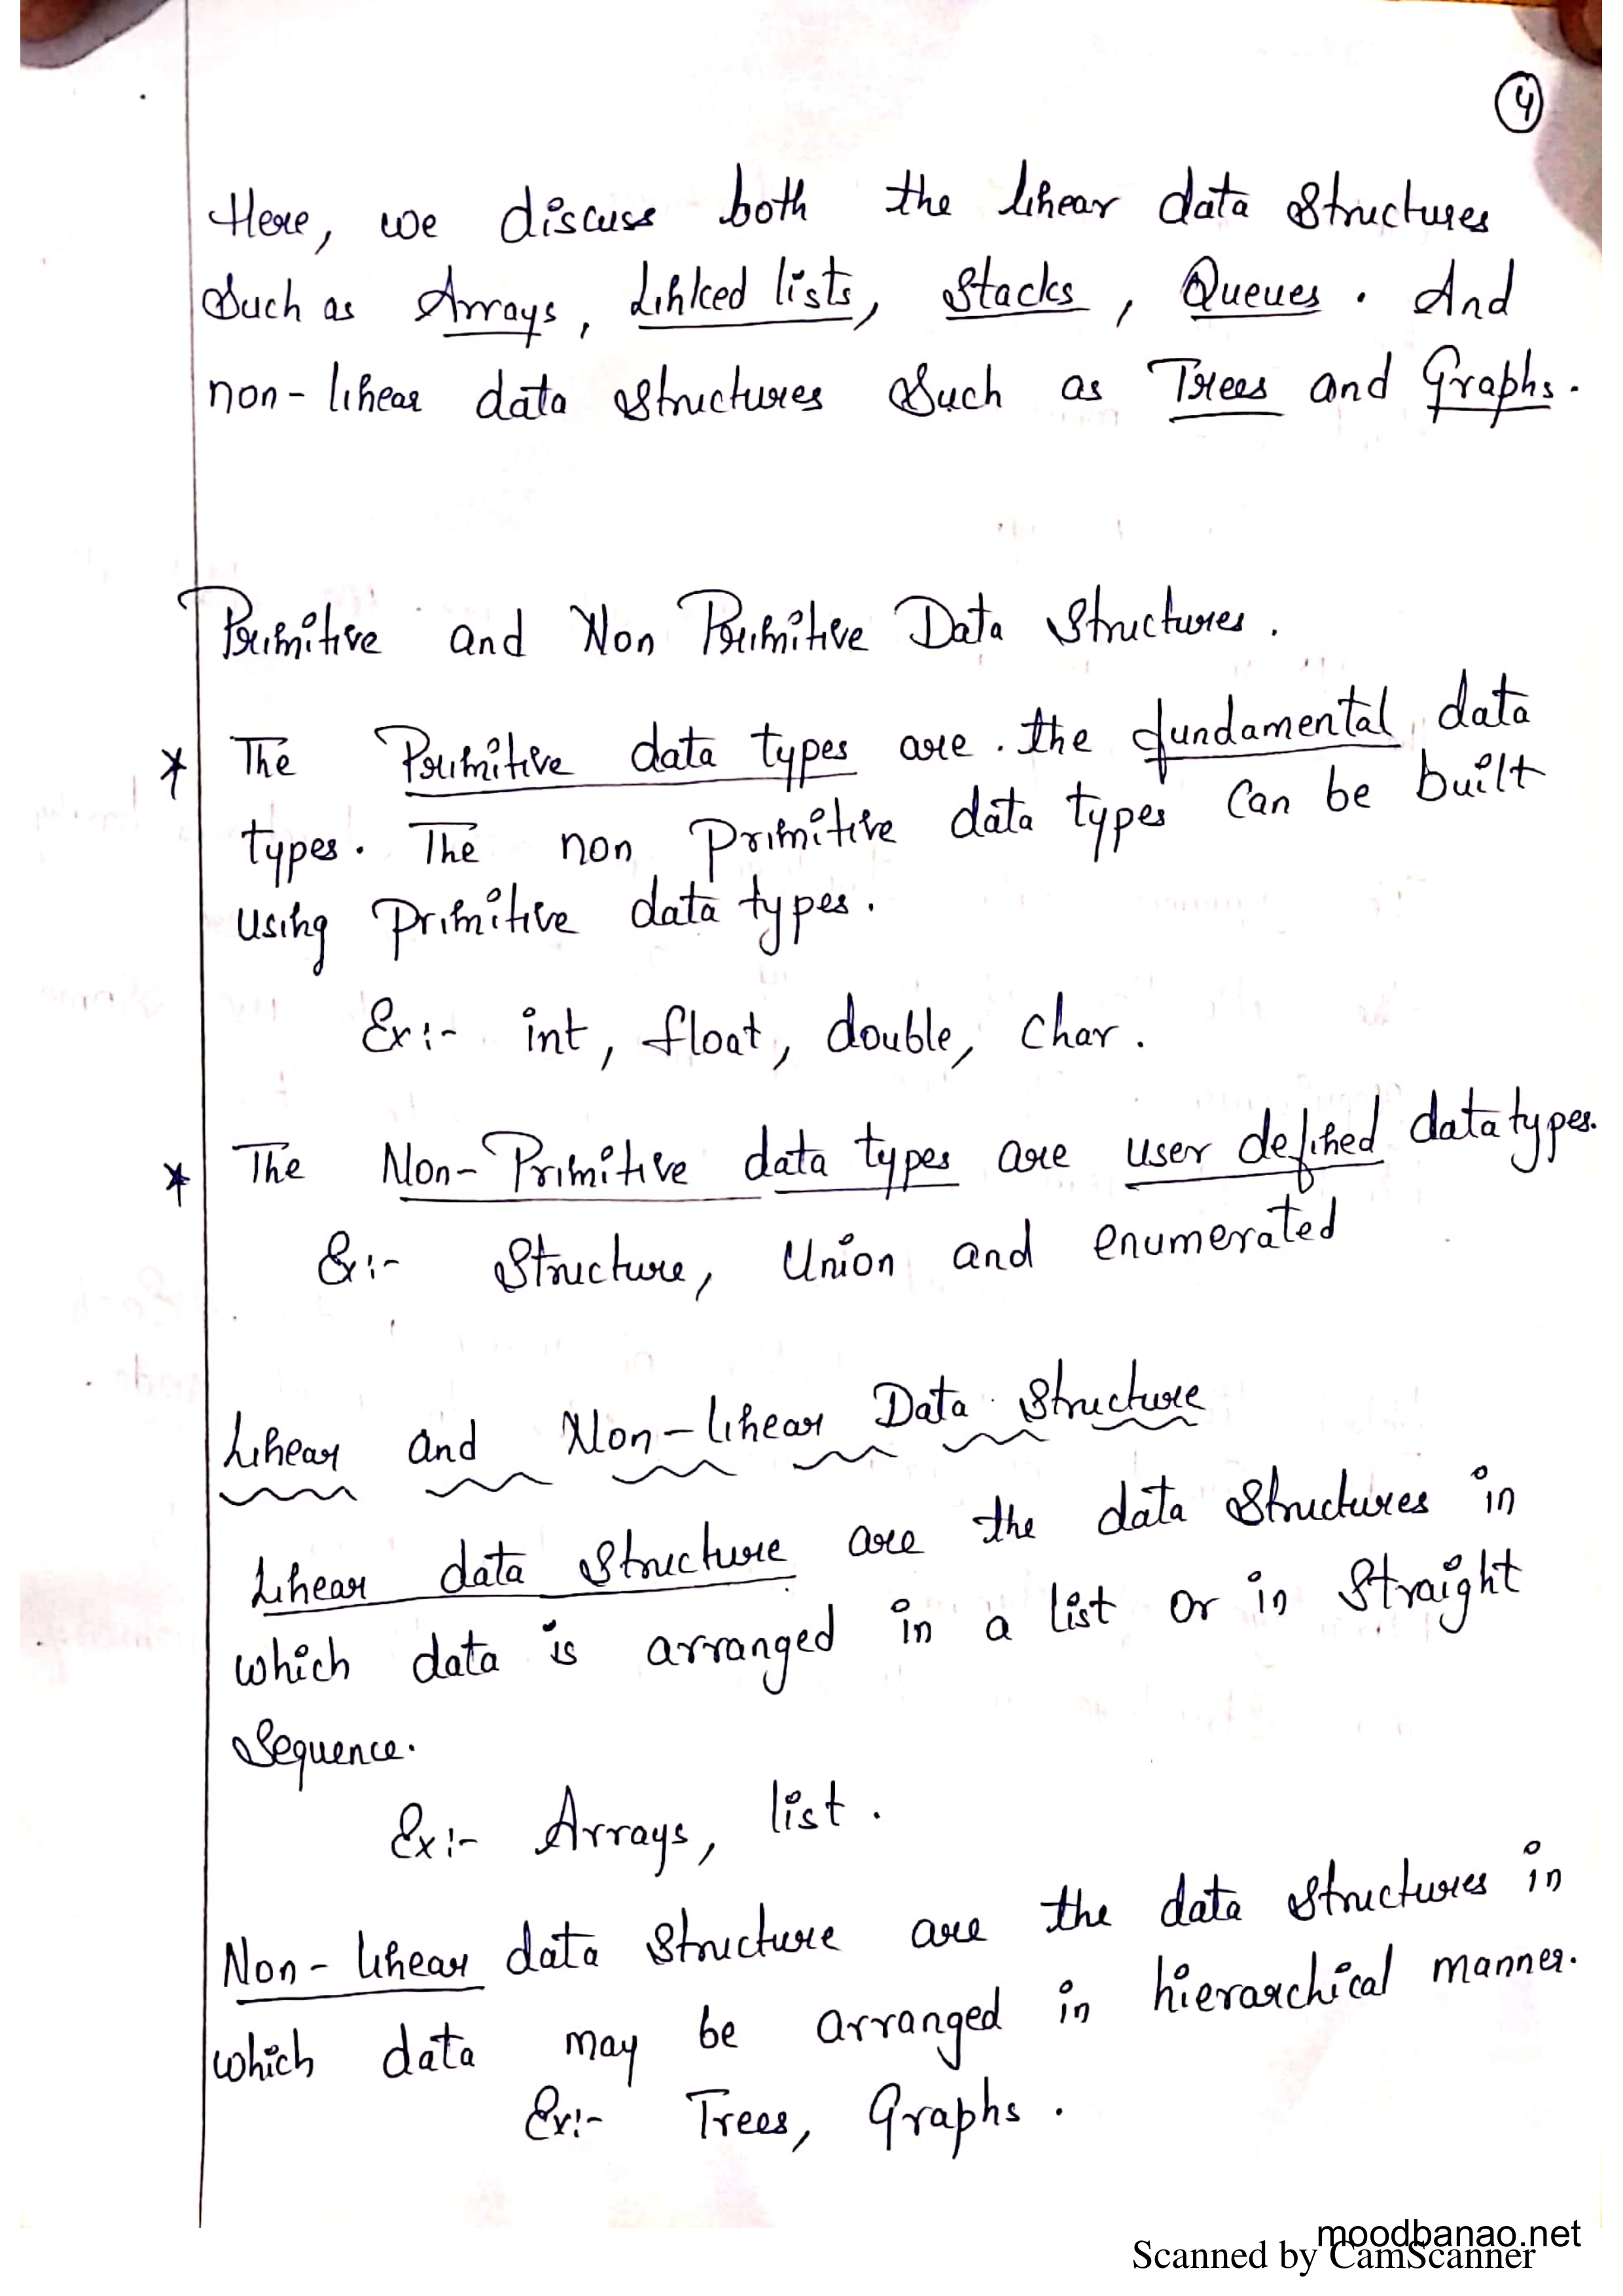 4
Here, we discuss both the linear data structures
Such as Arrays, Linked lists, Stacks, Queues. And
non-linear data structures Such as Trees and Graphs.
Primitive and Non Primitive Data Structures.
* The Primitive data types are the fundamental data
types. The non primitive data types can be built
using primitive data types.
Ex:- int, float, double, char.
* The Non-Primitive data types are user defined datatypes.
Ex:- Structure, Union and enumerated
Linear and Non-linear Data Structure
Linear data structure are the data structures in
which data is arranged in a list or in straight
Sequence.
Ex:- Arrays, list.
Non-linear data structure are the data structures in
which data may be arranged in hierarchical manner.
Ex:- Trees, Graphs.
moodbanao.net
Scanned by CamScanner